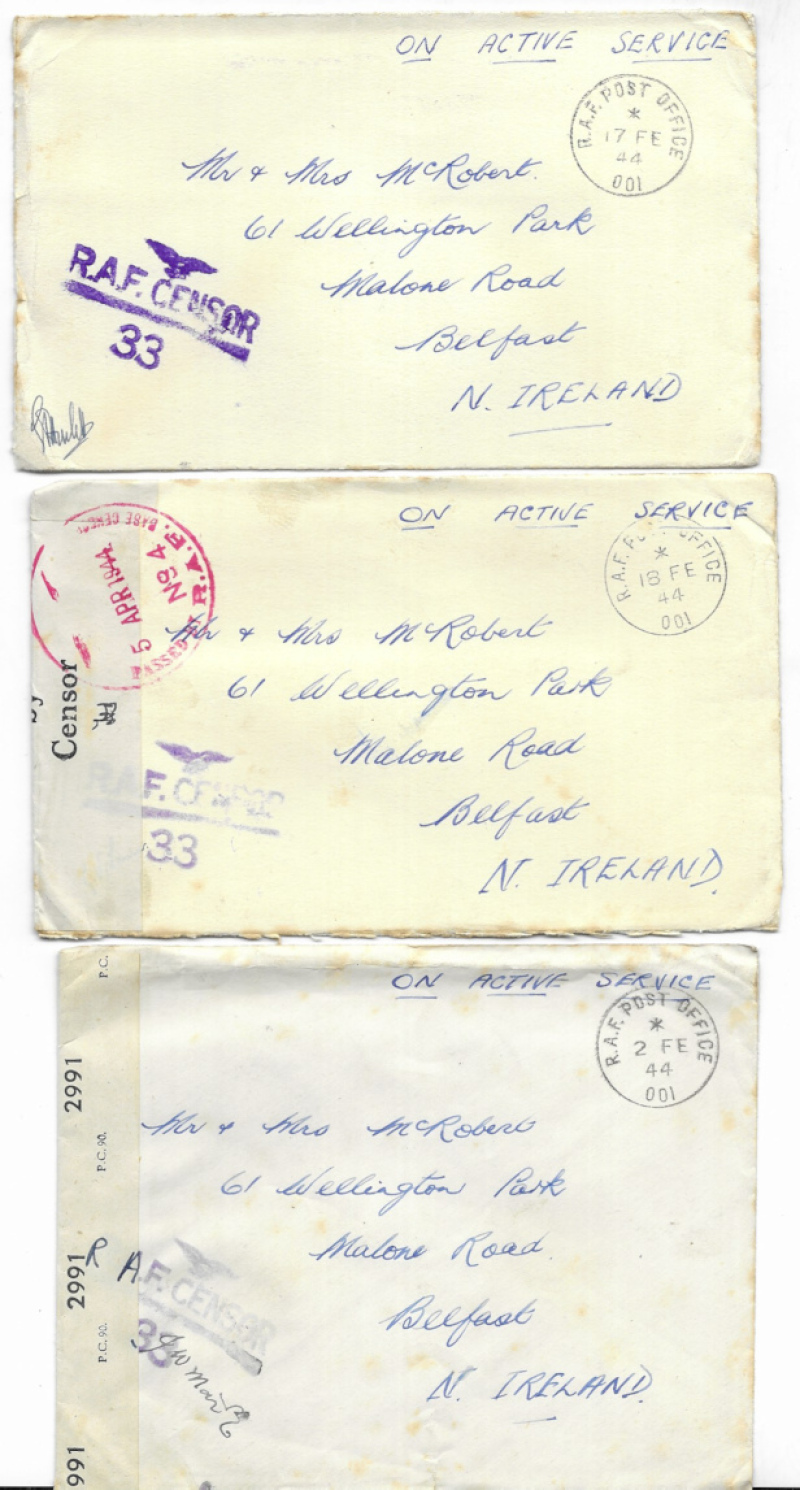 ON ACTIVE SERVICE
R.A.F. POST OFFICE
*
17 FE
44
001
Mr & Mrs McRobert.
61 Wellington Park
Malone Road
Belfast
N. IRELAND
R.A.F. CENSOR
33
ON ACTIVE SERVICE
R.A.F. POST OFFICE
*
18 FE
44
001
PASSED R.A.F. BASE CENSOR
No 4
5 APR 1944
Mr & Mrs McRobert
61 Wellington Park
Malone Road
Belfast
N. IRELAND.
by
Censor
R.A.F. CENSOR
33
ON ACTIVE SERVICE
R.A.F. POST OFFICE
*
2 FE
44
001
Mr & Mrs McRobert
61 Wellington Park
Malone Road.
Belfast
N. IRELAND.
P.C.
2991
P.C. 90.
2991
P.C. 90.
991
R A.F. CENSOR
33